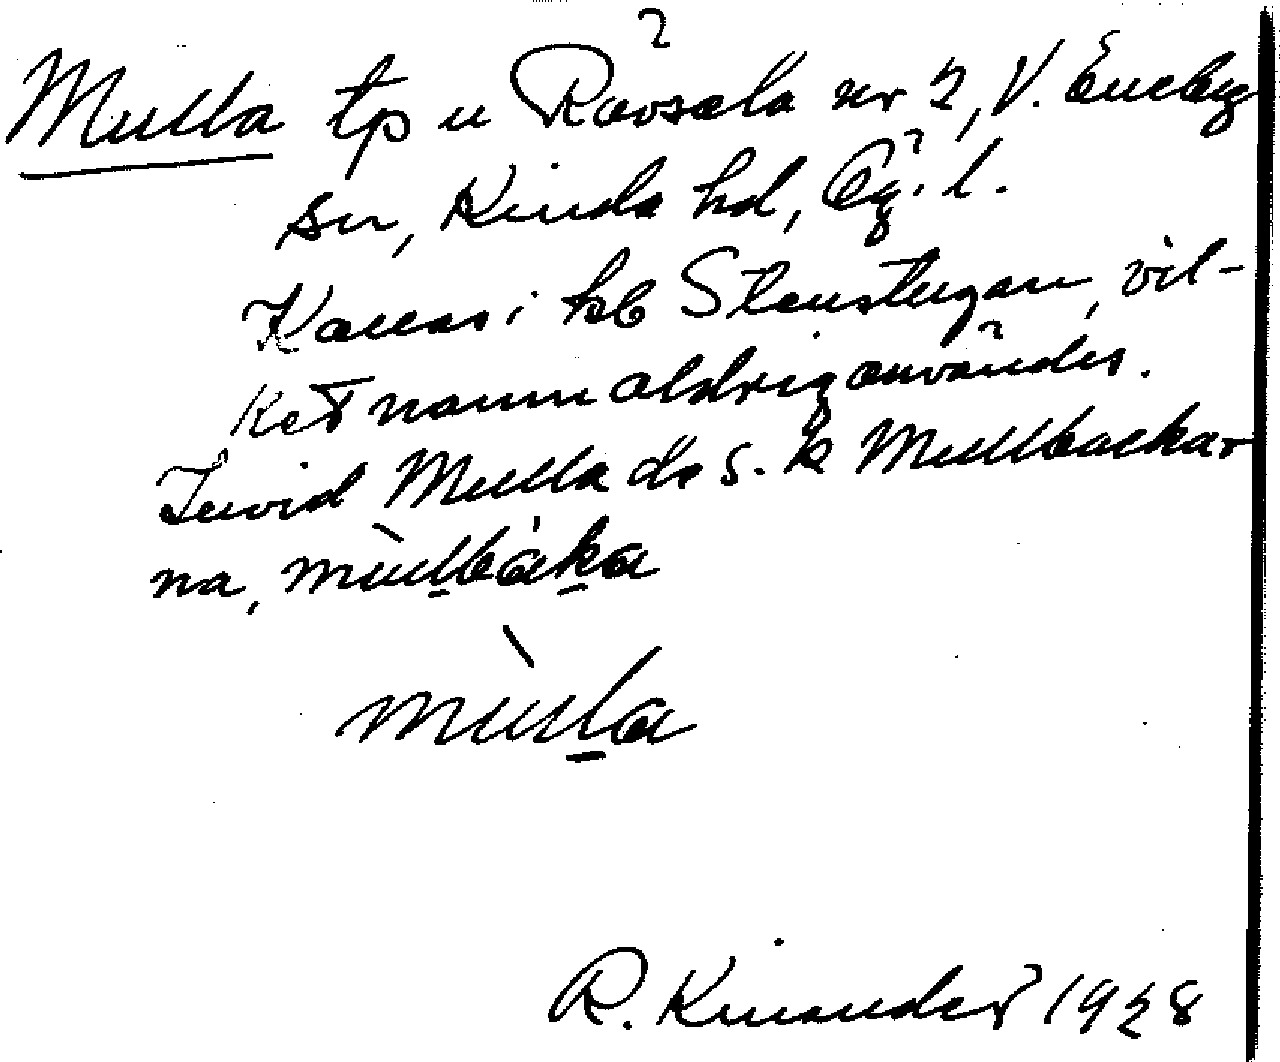 Mulla tp u Råvsala nr 2, V. Eneby
sn, Kinda hd, Ög. l.
Kallas i kb Stenstugan, vil-
ket namn aldrig användes.
Invid Mulla de s. k Mullbackar
na, mùllbàka
mùlla
R. Kinander 1928